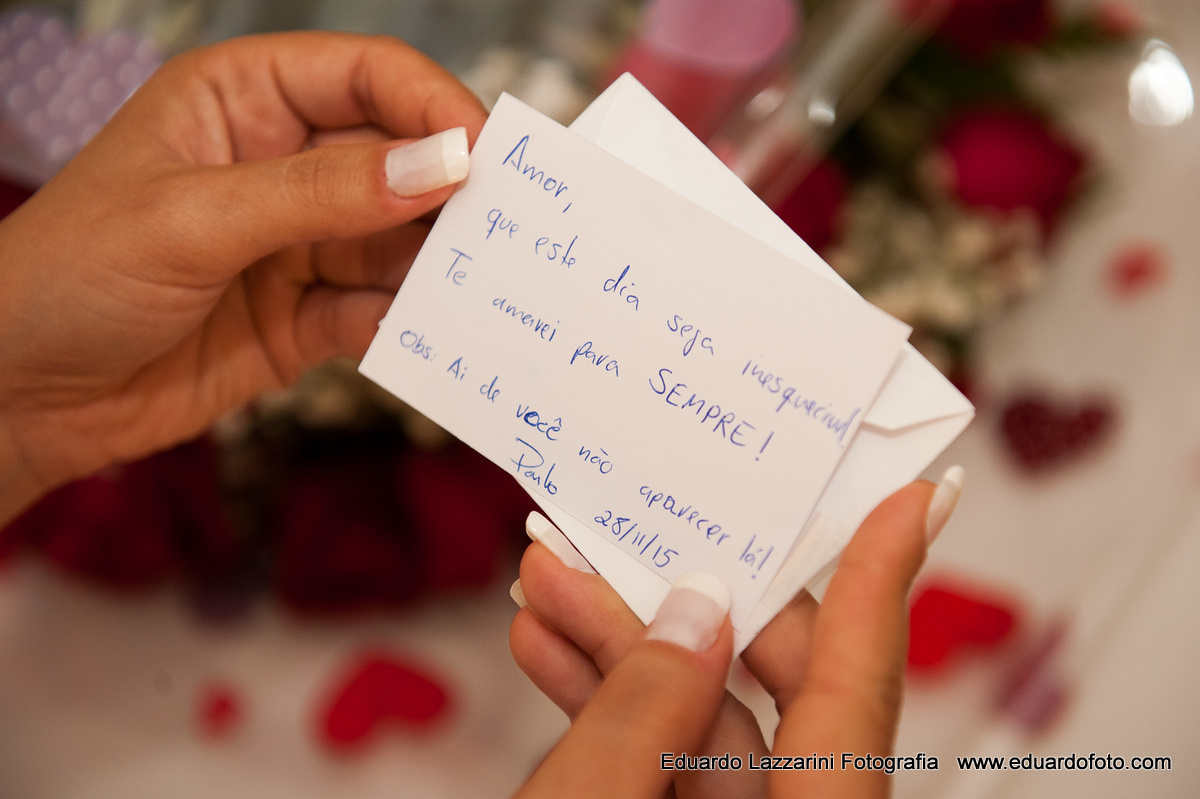 Amor,
que este dia seja inesquecível
Te amarei para SEMPRE!
Obs: Ai de você não aparecer lá!
Paulo
28/11/15
Eduardo Lazzarini Fotografia www.eduardofoto.com